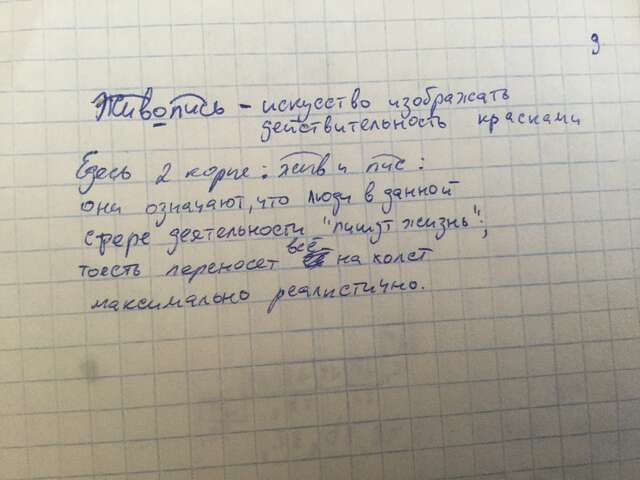 9
Живопись - искусство изображать
действительность красками
Здесь 2 корня: жив и пис:
они означают, что люди в данной
сфере деятельности "пишут жизнь";
тоесть переносят всё на холст
максимально реалистично.